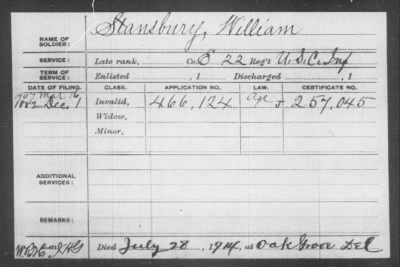 NAME OF SOLDIER: Stansbury, William
SERVICE: Late rank, Co. E 22 Reg't U.S.C. Inf
TERM OF SERVICE: Enlisted , 1 Discharged , 1
DATE OF FILING. CLASS. APPLICATION NO. LAW. CERTIFICATE NO.
1907 Mar 16 Age
1882 Dec. 1 Invalid, 466,124 J 257,045
Widow,
Minor,
ADDITIONAL SERVICES:
REMARKS:
Died July 28, 1914, at Oak Grove Del